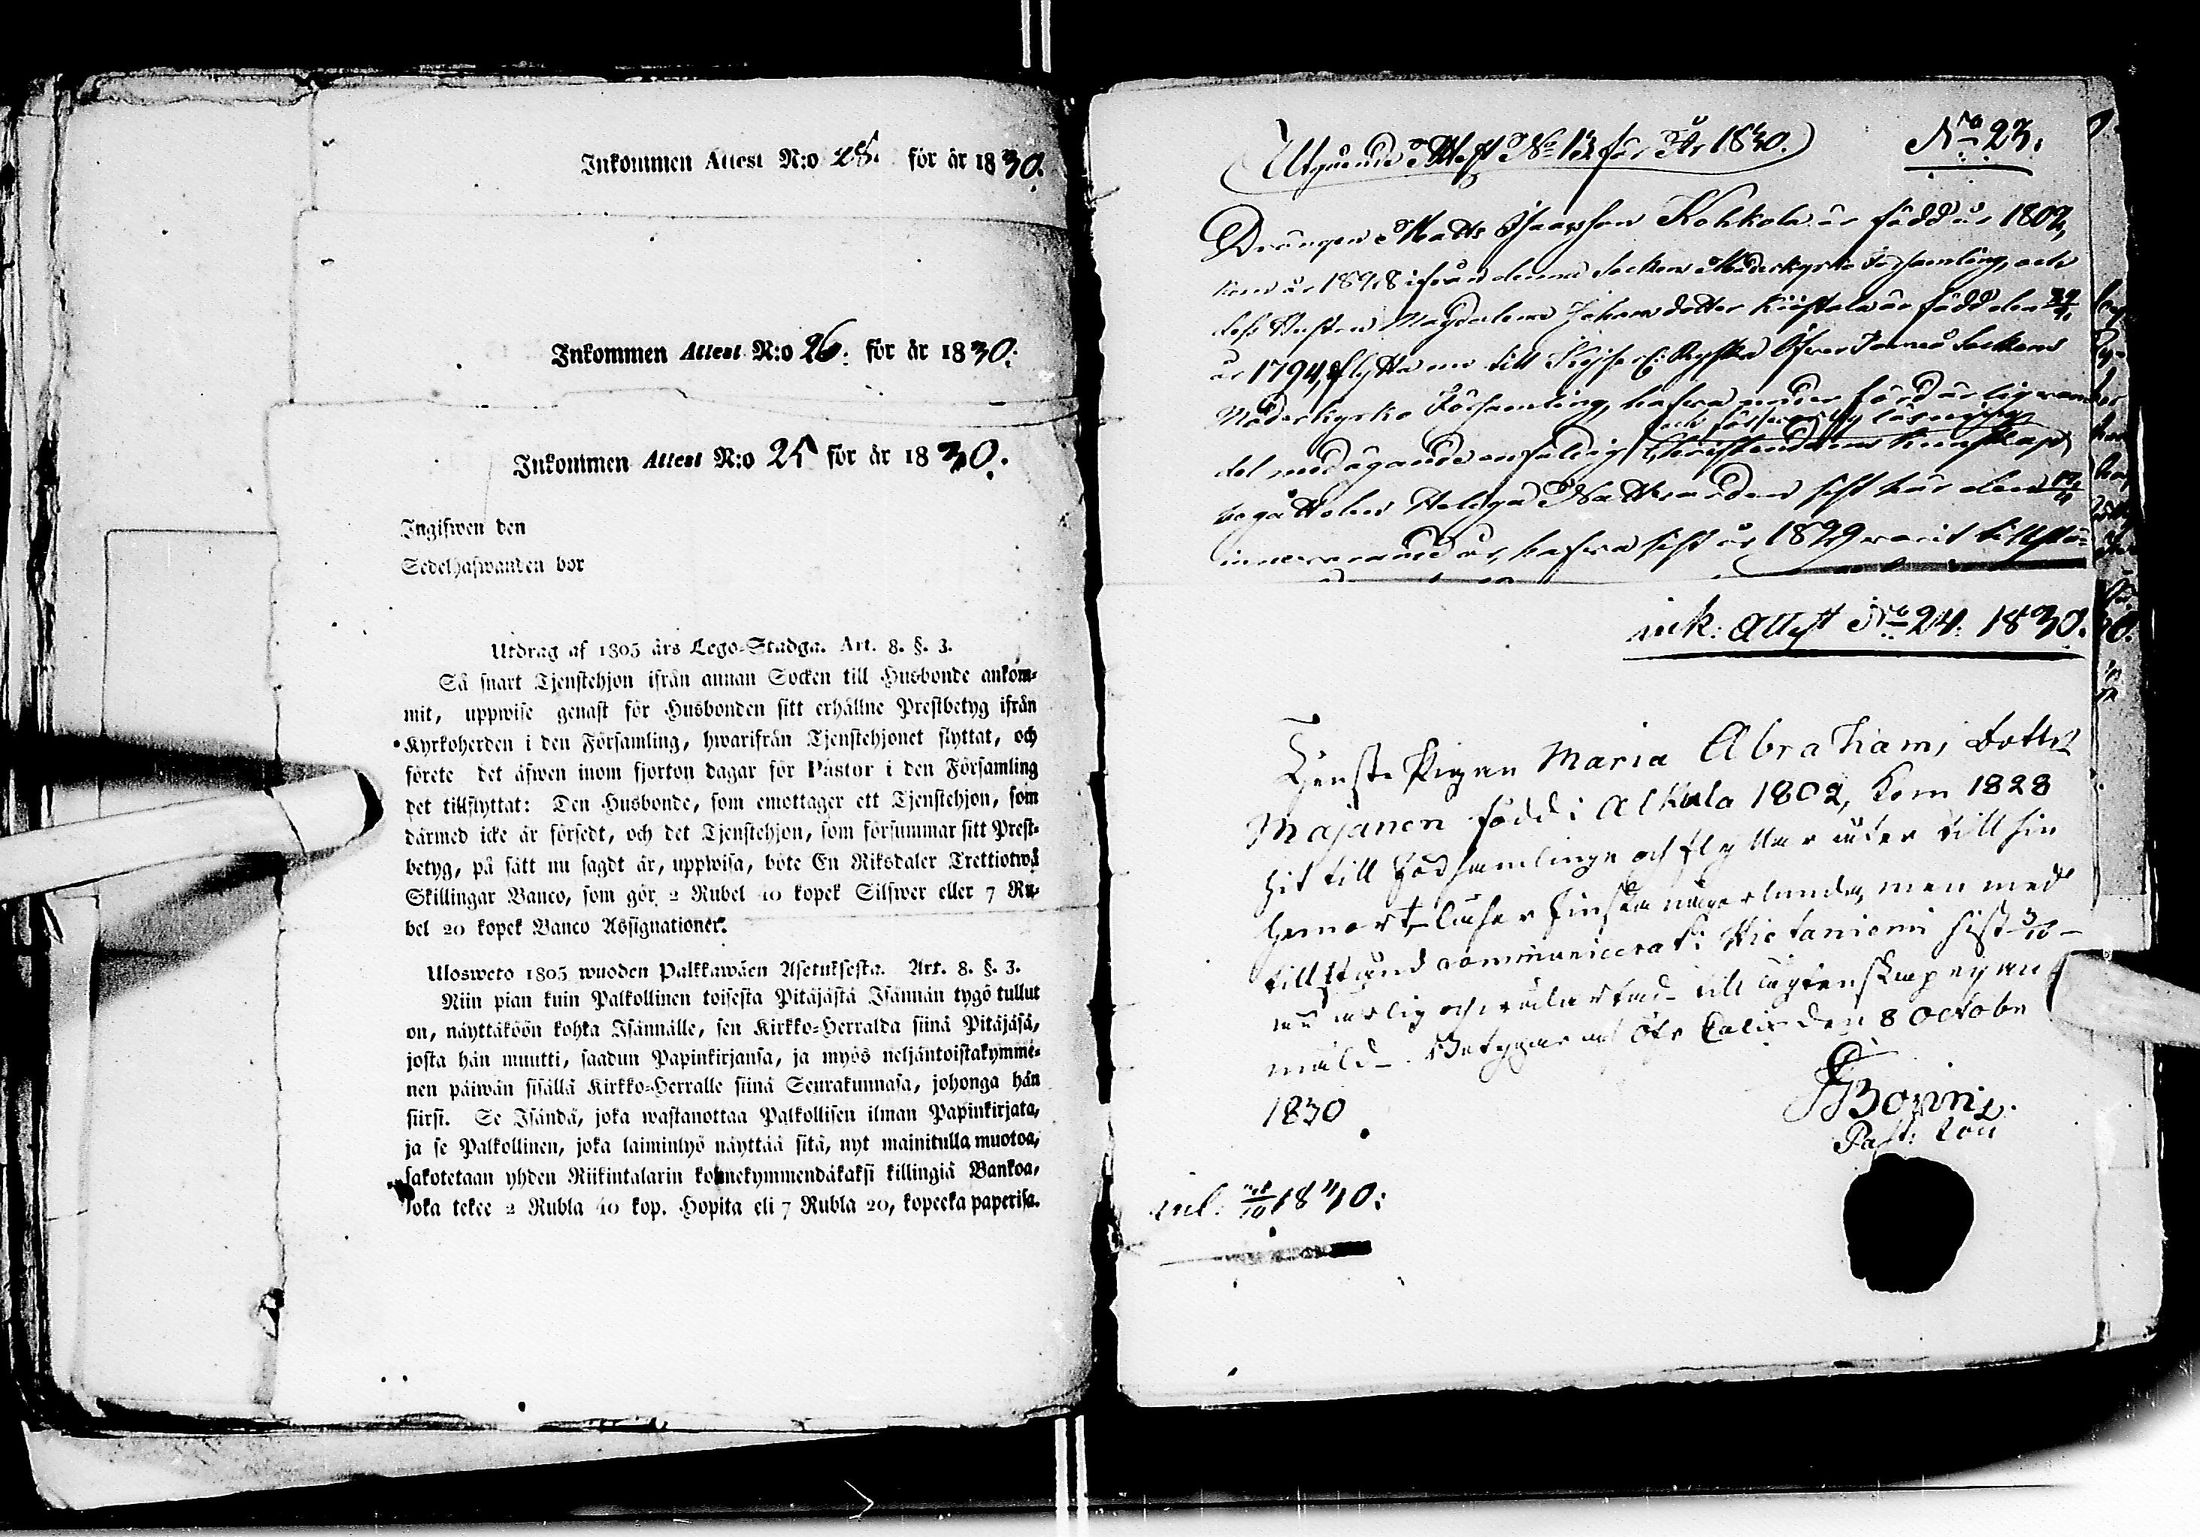 Inkommen Attest N:o 28. för år 1830.
Inkommen Attest N:o 26. för år 1830.
Inkommen Attest N:o 25 för år 1830.
Ingifwen den
Sedelhafwanden bor
Utdrag af 1805 års Lego-Stadga. Art. 8. §. 3.
Så snart Tjenstehjon ifrån annan Socken till Husbonde ankom-
mit, uppwise genast för Husbonden sitt erhållne Prestbetyg ifrån
Kyrkoherden i den Församling, hwarifrån Tjenstehjonet flyttat, och
förete det äfwen inom fjorton dagar för Pastor i den Församling
det tillflyttat: Den Husbonde, som emottager ett Tjenstehjon, som
därmed icke är försedt, och det Tjenstehjon, som försummar sitt Prest-
betyg, på sätt nu sagdt är, uppwisa, böte En Riksdaler Trettiotwå
Skillingar Banco, som gör 2 Rubel 40 kopek Silfwer eller 7 Ru-
bel 20 kopek Banco Assignationer.
Ulosweto 1805 wuoden Palkkawäen Asetuksesta. Art. 8. §. 3.
Niin pian kuin Palkollinen toisesta Pitäjästä Isännän tygö tullut
on, näyttäköön kohta Isännälle, sen Kirkko-Herralda siinä Pitäjäsä,
josta hän muutti, saadun Papinkirjansa, ja myös neljäntoistakymme-
nen päiwän sisällä Kirkko-Herralle siinä Seurakunnasa, johonga hän
siirsi. Se Isändä, joka wastanottaa Palkollisen ilman Papinkirjata,
ja se Palkollinen, joka laiminlyö näyttää sitä, nyt mainitulla muotoa,
sakotetaan yhden Riikintalarin kolmekymmendäkaksi killingiä Bankoa,
joka tekee 2 Rubla 40 kop. Hopita eli 7 Rubla 20, kopeeka paperisa.
Utgående Attest No 13 för År 1830. No 23.
Drängen Matts Isaacsson Kohkola är född år 1802,
kom år 1828 ifrån denna Sockens Moderkyrko Församling, och
dess Hustru Magdalena Johansdotter är född den
år 1794, flytta nu till Öfver Torneå Sockens
Moderkyrko Församling, hafva
Christendoms kunskap
begått den Helga Nattvarden sist här den
innevarande år, hafva sist år 1829 varit
ink. Attest No 24. 1830.
Tjenste Pigan Maria Abrahams dotter
Majanen född i Alkula 1802, kom 1828
hit till Församlingen och flyttar åter till sin
hemort, läser Finska någorlunda, men med
tillstånd communicerat i Hietaniemi sist
är ärlig och till ägtenskap ej an
mäld. Betygar af Öfr Calix den 8 Octobr
1830
Past:
inl. 1830: